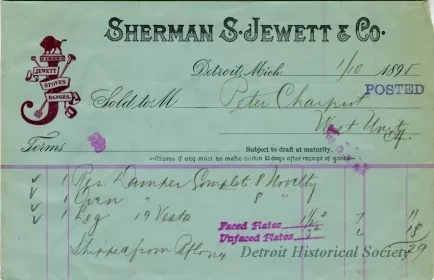 SHERMAN S. JEWETT & CO.
JEWETT
STOVES
RANGES
Detroit, Mich. 1/10 1895
POSTED
Sold to M Peter
West Unity
Terms
Subject to draft at maturity.
Claims if any must be made within 10 days after receipt of goods
1 Pos Damper Complet 8 Novelty
1 " 8 "
1 Leg 19 Vesta
Faced Plates
Unfaced Plates
Shipped from 29
Detroit Historical Society